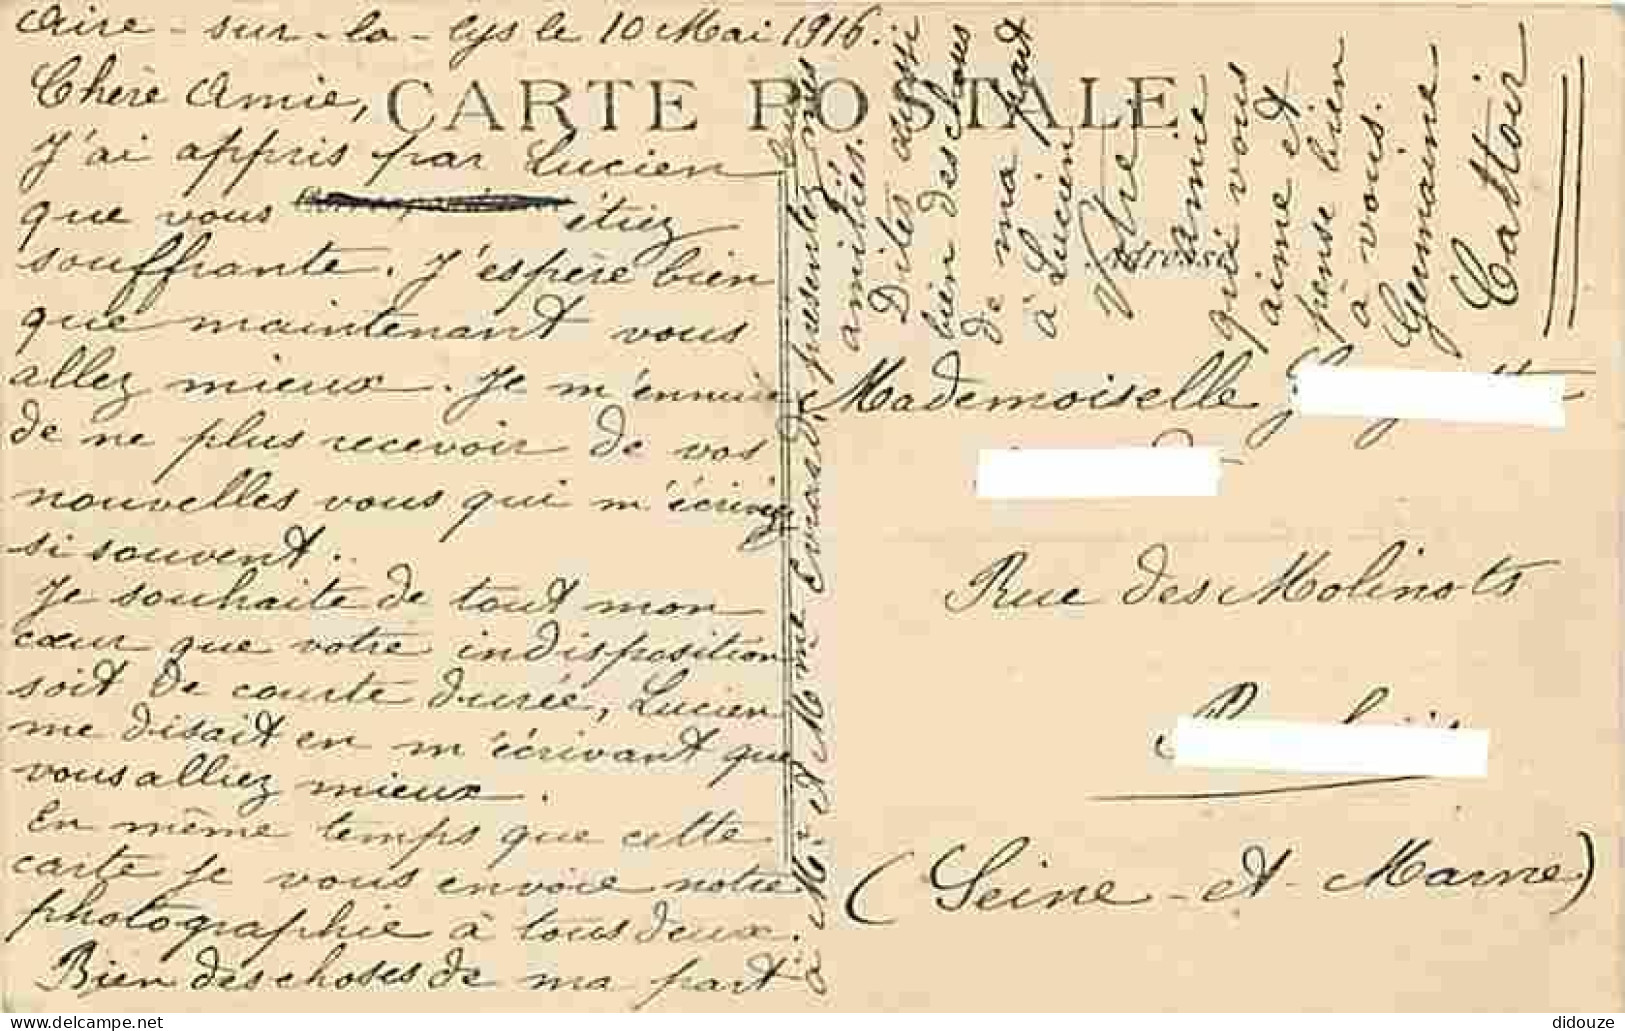 Aire-sur-la-Lys le 10 Mai 1916.
CARTE POSTALE
Chère Amie,
J'ai appris par Lucien
que vous étiez
souffrante. J'espère bien
que maintenant vous
allez mieux. Je m'ennuie
de ne plus recevoir de vos
nouvelles vous qui m'écriviez
si souvent.
Je souhaite de tout mon
cœur que votre indisposition
soit de courte durée, Lucien
me disait en m'écrivant que
vous alliez mieux.
En même temps que cette
carte je vous envoie notre
photographie à tous deux.
Bien des choses de ma part
à Mr et Mme Evrard, présentez
amitiés.
Dites aussi
bien des choses
de ma part
à Lucien
Votre
Amie
qui vous
aime et
pense bien
à vous.
Germaine
Cattoir
Adresse
Mademoiselle
Rue des Molinots
(Seine-et-Marne)
didouze